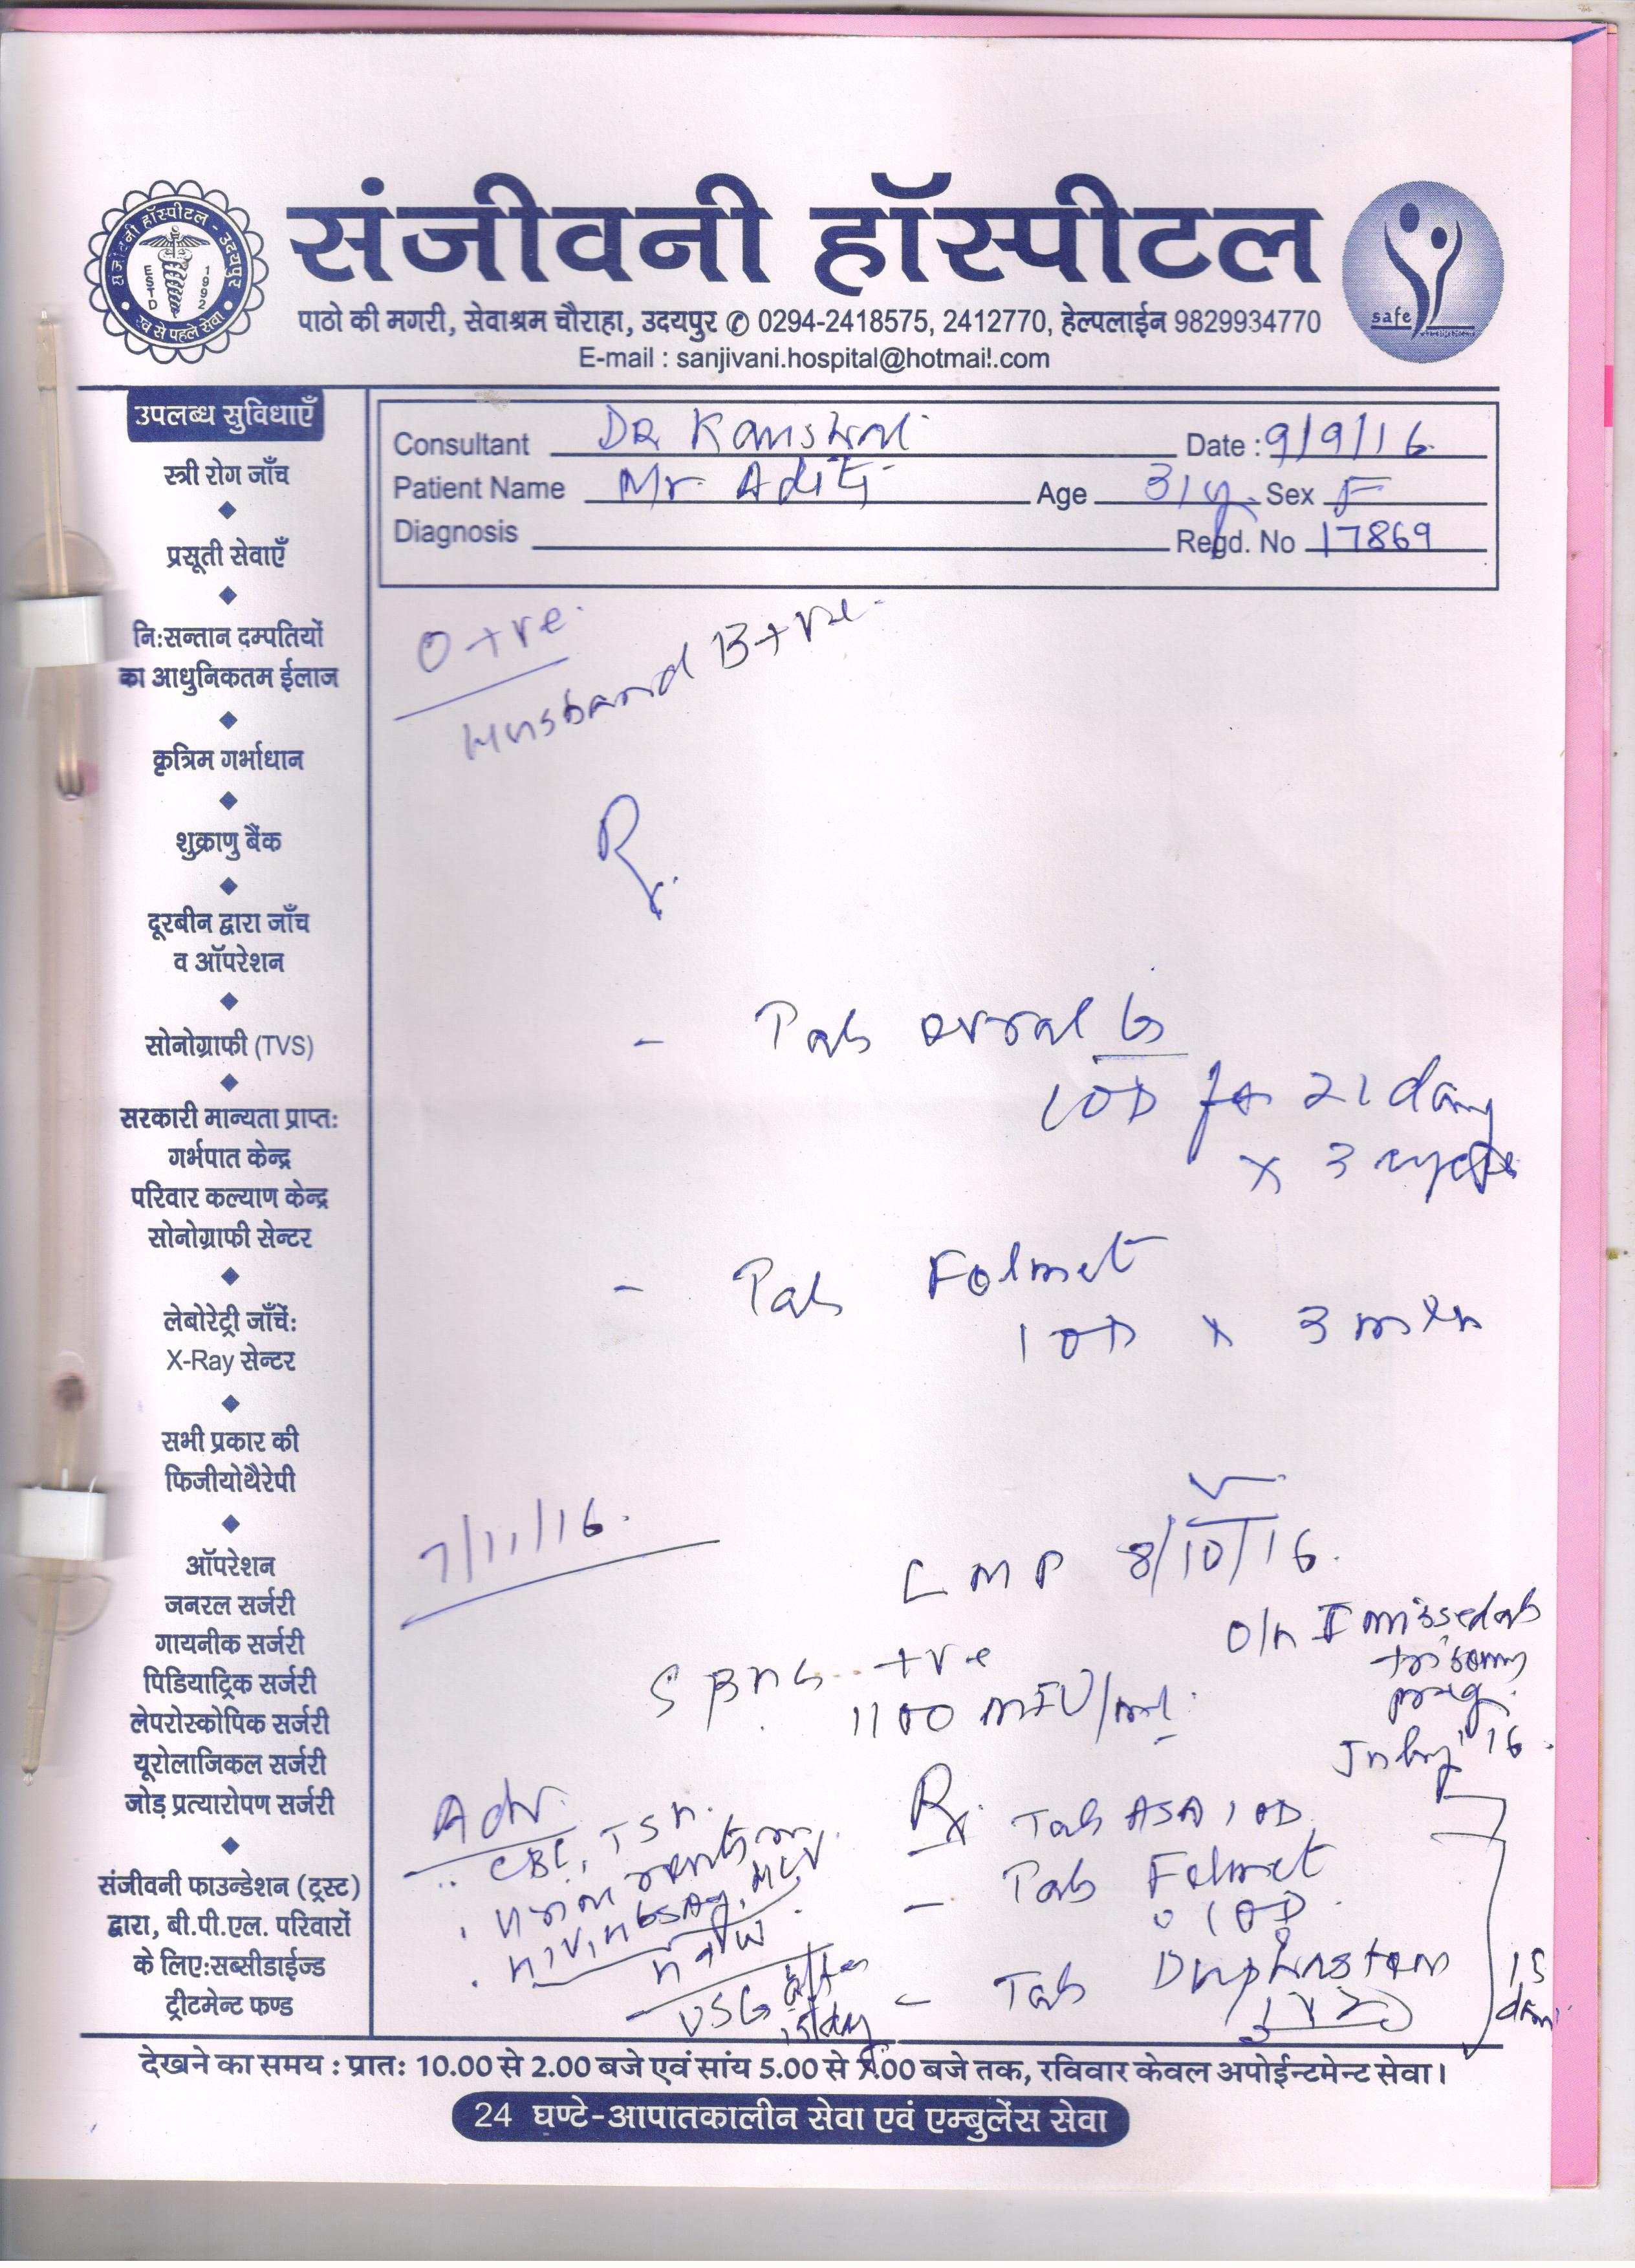 संजीवनी हॉस्पीटल
संजीवनी हॉस्पीटल - उदयपुर
ESTD 1992
स्व से पहले सेवा
safe
पाठो की मगरी, सेवाश्रम चौराहा, उदयपुर ✆ 0294-2418575, 2412770, हेल्पलाईन 9829934770
E-mail : sanjivani.hospital@hotmail.com
Consultant DR Kaushal Date : 9/9/16
Patient Name Mr Aditi Age 31 y. Sex F
Diagnosis Regd. No 17869
उपलब्ध सुविधाएँ
स्त्री रोग जाँच
प्रसूती सेवाएँ
नि:सन्तान दम्पतियों
का आधुनिकतम ईलाज
कृत्रिम गर्भाधान
शुक्राणु बैंक
दूरबीन द्वारा जाँच
व ऑपरेशन
सोनोग्राफी (TVS)
सरकारी मान्यता प्राप्त:
गर्भपात केन्द्र
परिवार कल्याण केन्द्र
सोनोग्राफी सेन्टर
लेबोरेट्री जाँचें:
X-Ray सेन्टर
सभी प्रकार की
फिजीयोथैरेपी
ऑपरेशन
जनरल सर्जरी
गायनीक सर्जरी
पिडियाट्रिक सर्जरी
लेपरोस्कोपिक सर्जरी
यूरोलाजिकल सर्जरी
जोड़ प्रत्यारोपण सर्जरी
संजीवनी फाउन्डेशन (ट्रस्ट)
द्वारा, बी.पी.एल. परिवारों
के लिए:सब्सीडाईज्ड
ट्रीटमेन्ट फण्ड
O +ve.
Husband B+ve.
Rx
- Tab ovral G
1 OD for 21 days
x 3 cycles
- Tab Folmet
1 OD x 3 mth
7/11/16.
LMP 8/10/16.
O/H I missed ab
trisomy
preg.
July '16.
S BHCG +ve
1100 mIU/ml.
Adv.
CBC, TSH.
HIV, HBSAg, HCV
USG after
15 day
Rx. Tab ASA 1 OD
- Tab Folmet
1 OD.
- Tab Duphaston
1 x 2
15 days
देखने का समय : प्रात: 10.00 से 2.00 बजे एवं सांय 5.00 से 7.00 बजे तक, रविवार केवल अपोईन्टमेन्ट सेवा।
24 घण्टे-आपातकालीन सेवा एवं एम्बुलेंस सेवा